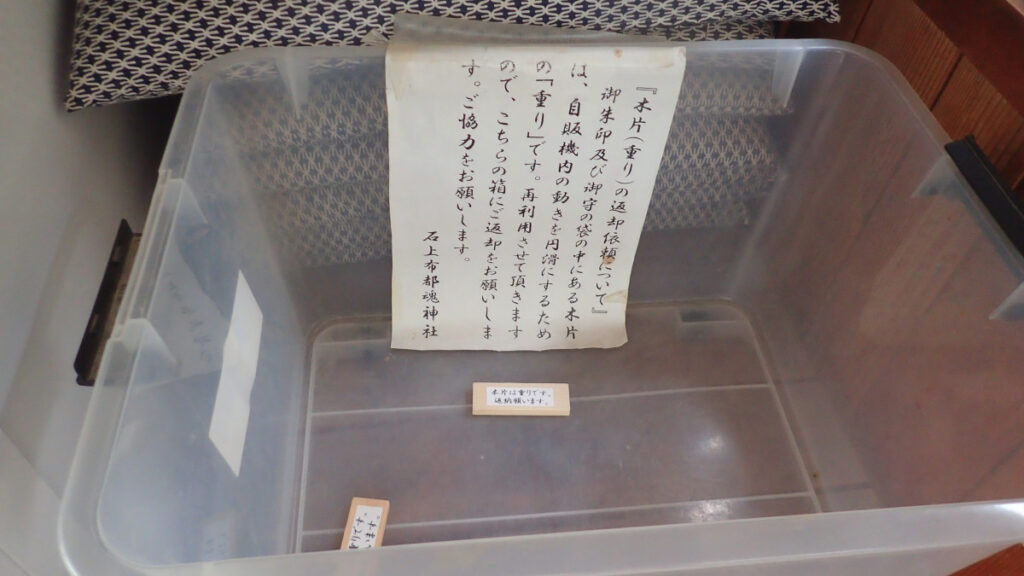 『木片(重り)の返却依頼について』
御朱印及び御守の袋の中にある木片
は、自販機内の動きを円滑にするため
の「重り」です。再利用させて頂きます
ので、こちらの箱にご返却をお願いしま
す。ご協力をお願いします。
石上布都魂神社
木片は重りです。
返納願います。